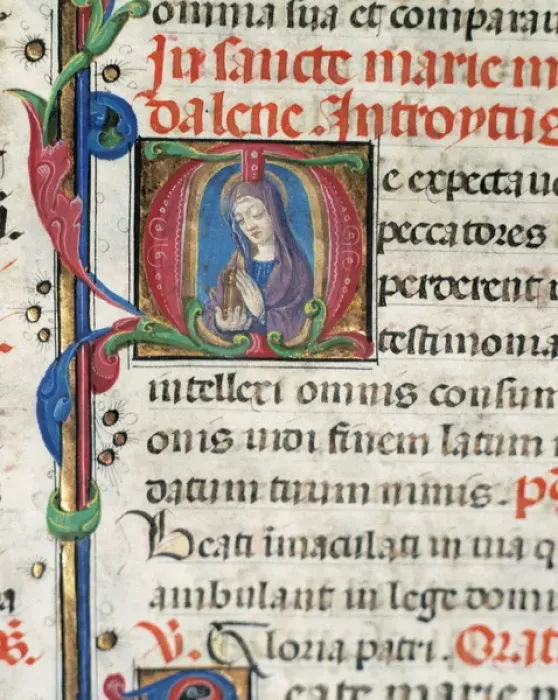 omnia sua et comparau
In sancte marie m
dalene. Introytus
Me expectaue
peccatores
perderent
testimonia
intellexi omnis consum
onis uidi finem latum
datum tuum nimis. ps
Beati inmaculati in uia q
ambulant in lege domi
V. Gloria patri. Orat
eate marie m